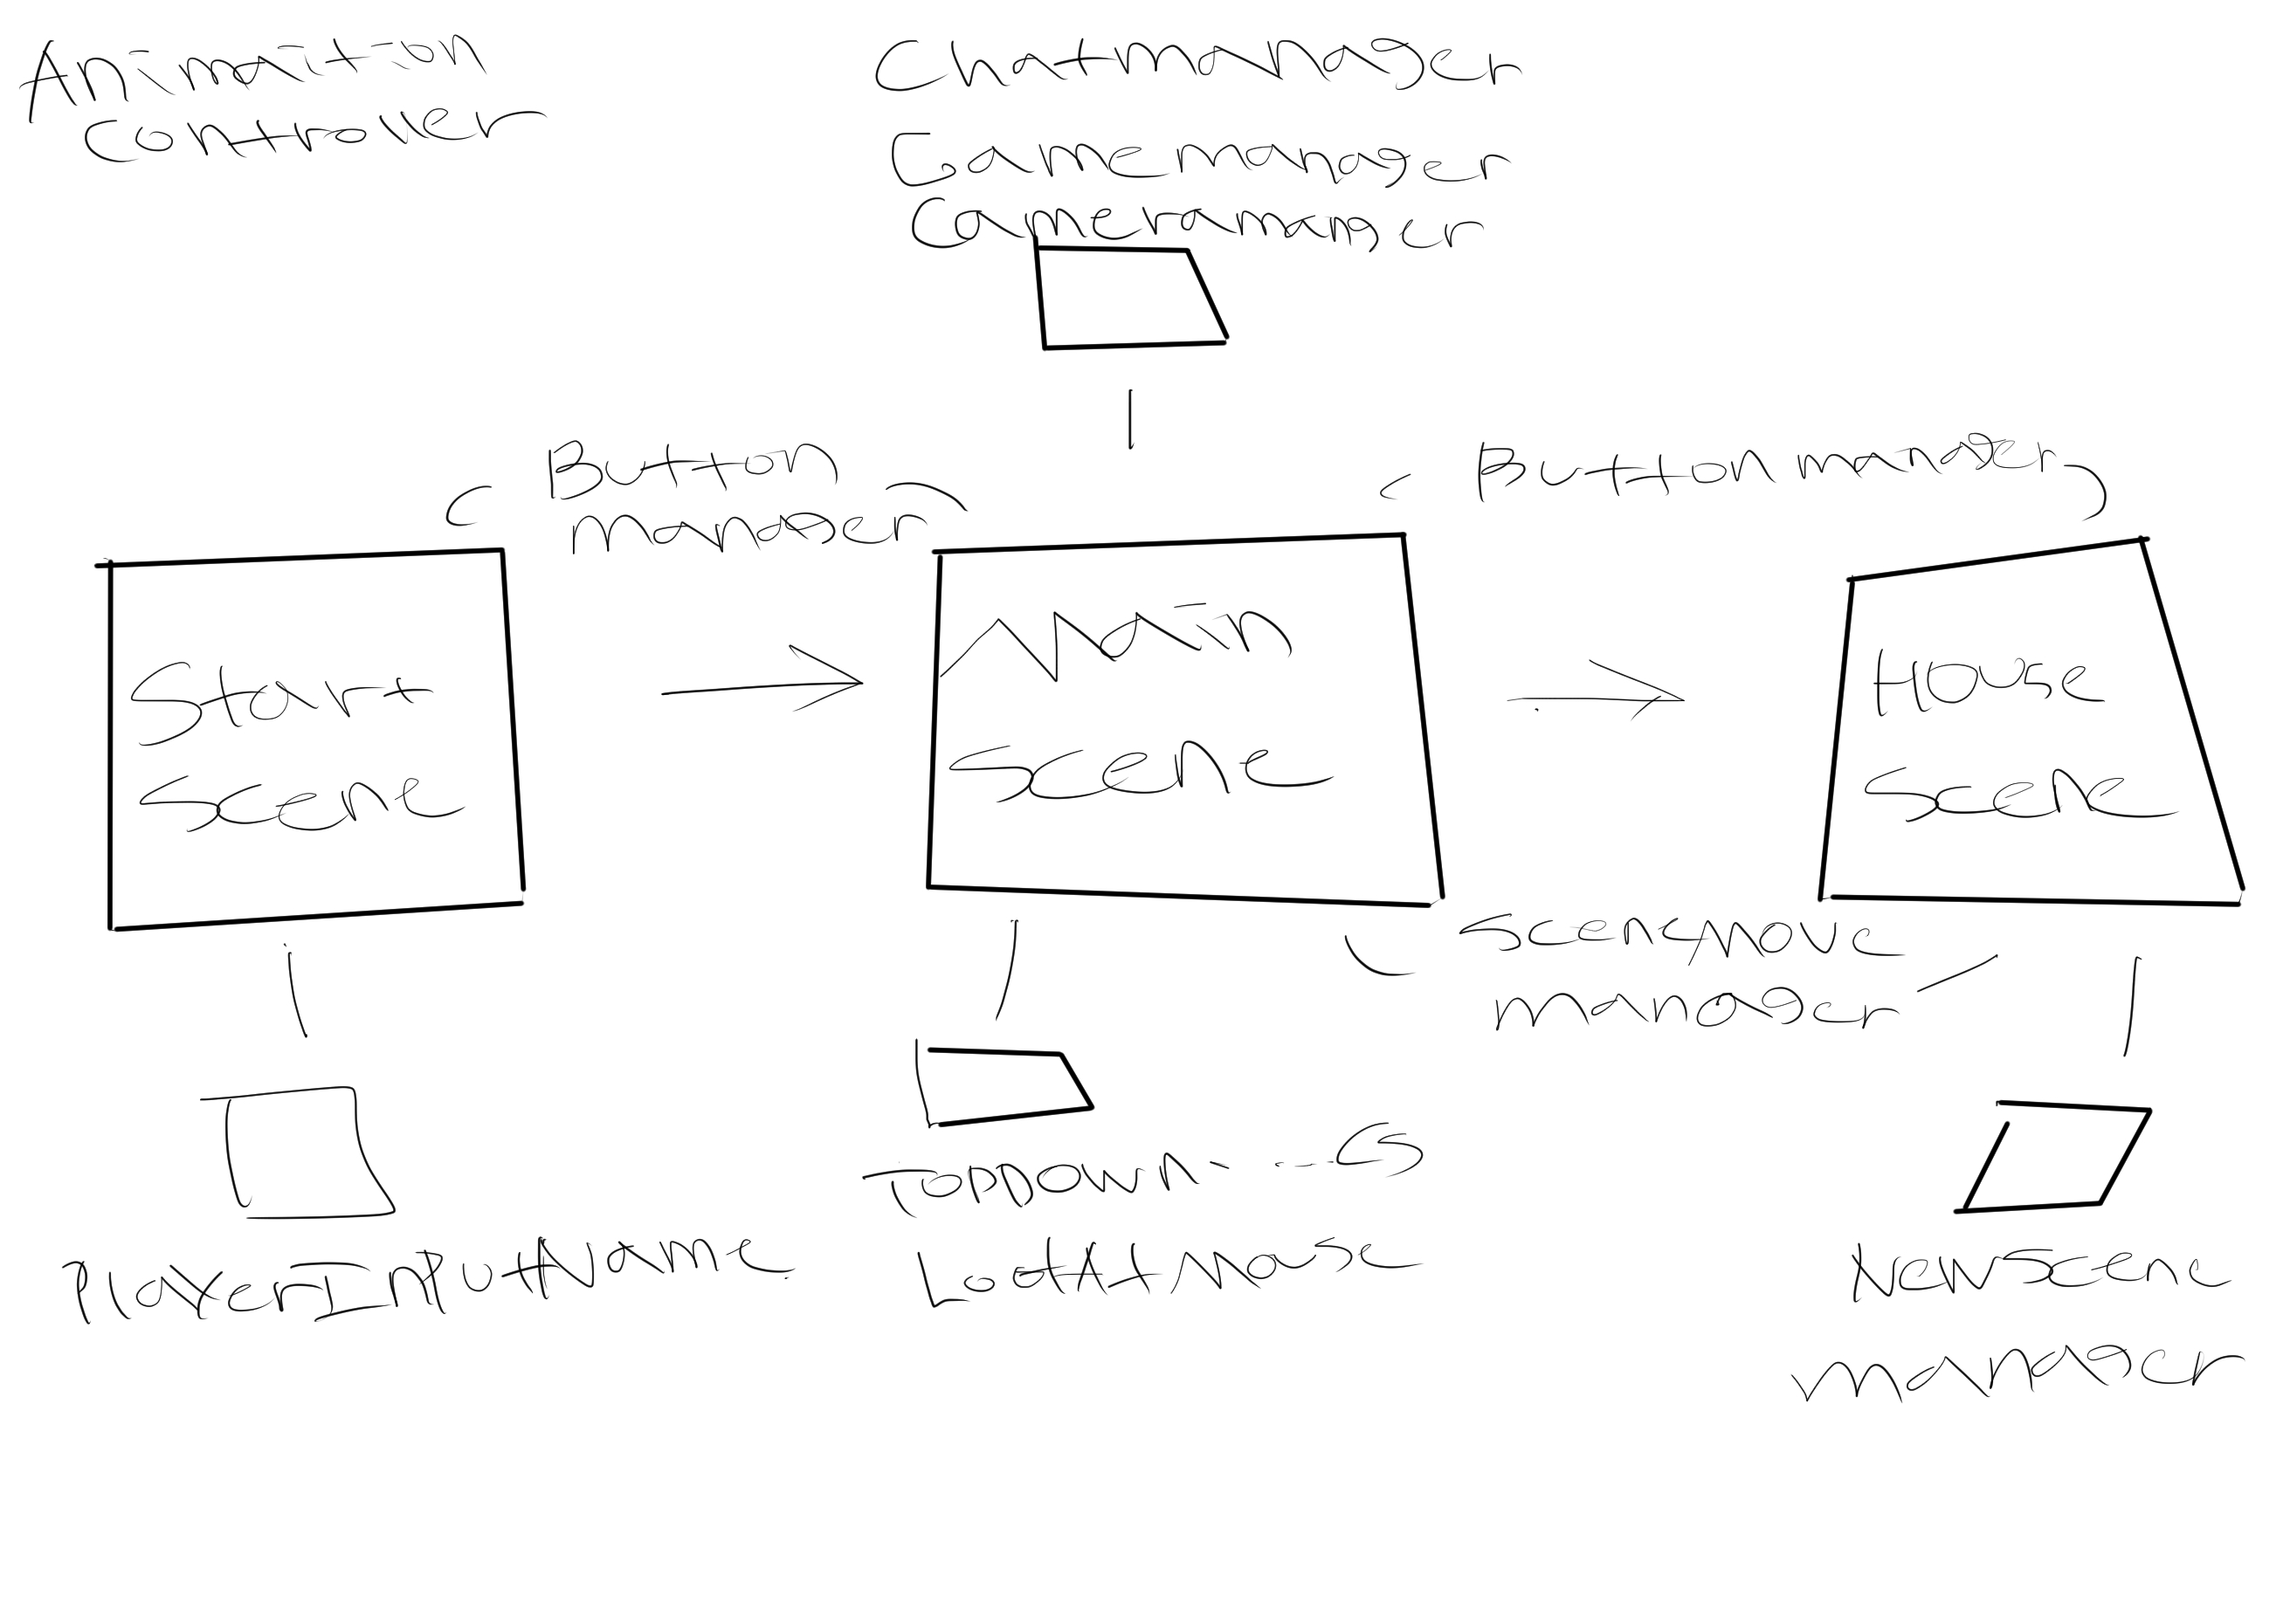 Animation
Controller
Chatmanager
Gamemanager
Cameramanger
Button
manager
Button manager
Start
Scene
Main
Scene
House
Scene
SceneMove
manager
TopDown- ---S
PlayerInputName
Mouse
NewScene
manager